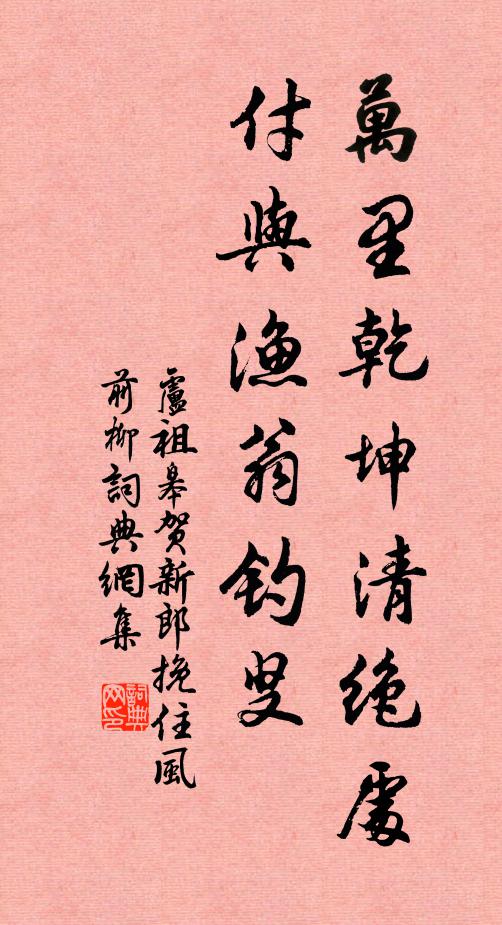 萬里乾坤清絶處
付與漁翁釣叟
盧祖皋賀新郎挽住風
前柳詞典網集
詞典网印